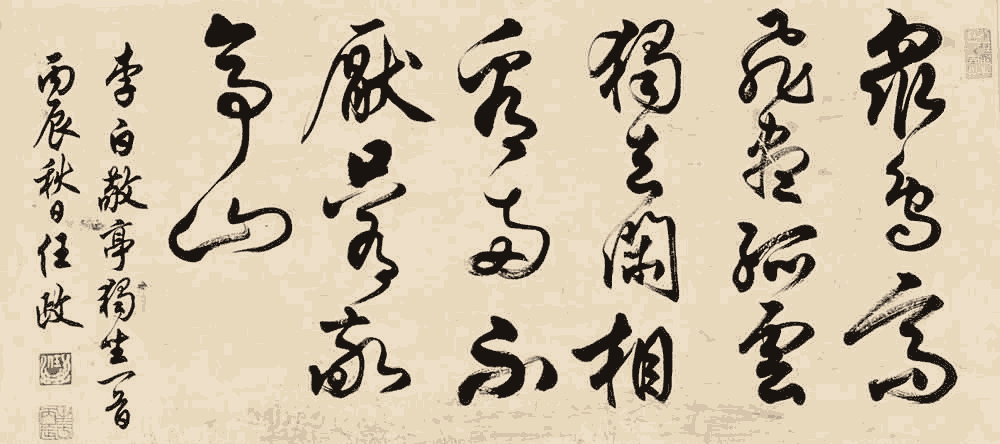 眾鳥高
飛盡孤雲
獨去閑相
看兩不
厭只有敬
亭山
李白敬亭獨坐一首
丙辰秋日任政